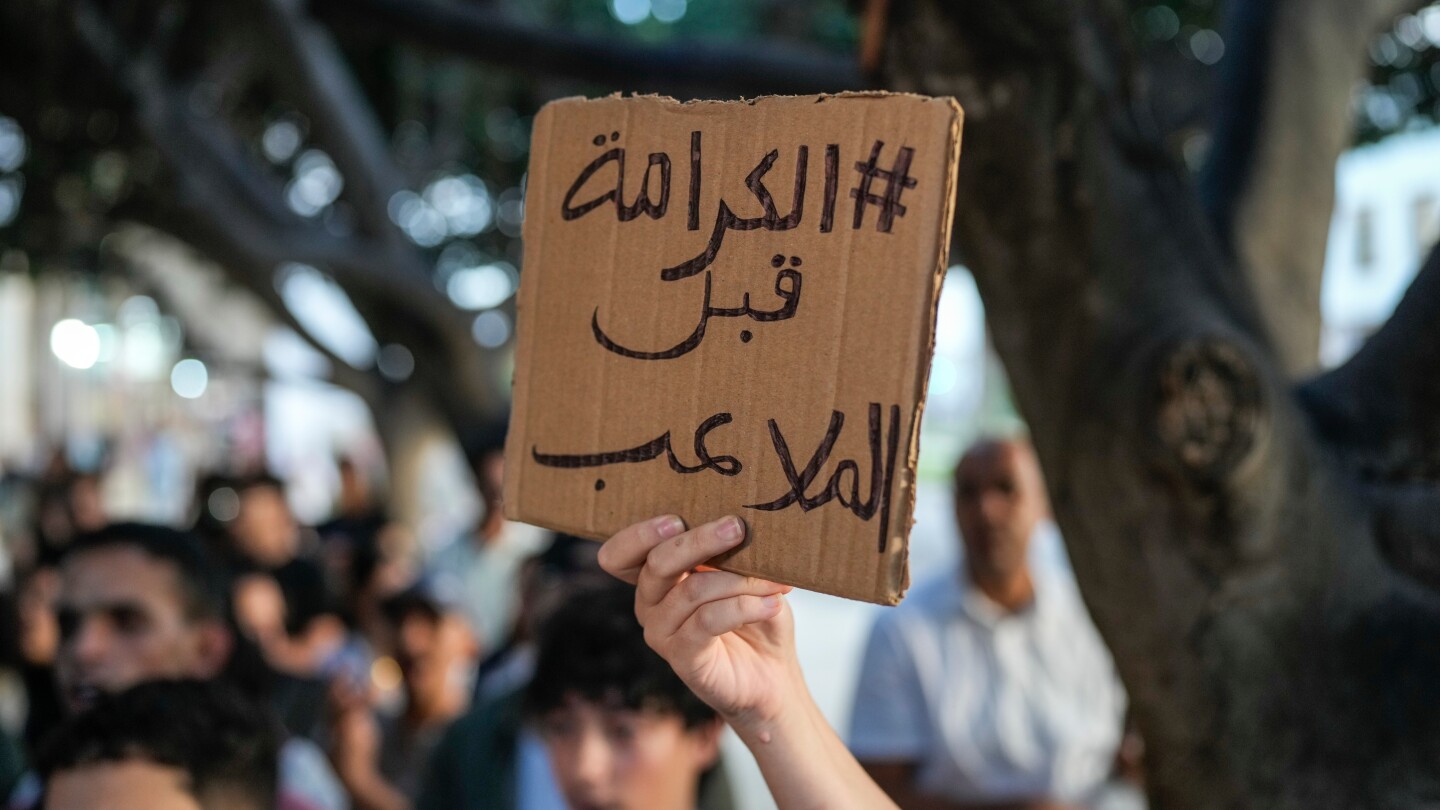 #الكرامة
قبل
الملاعب